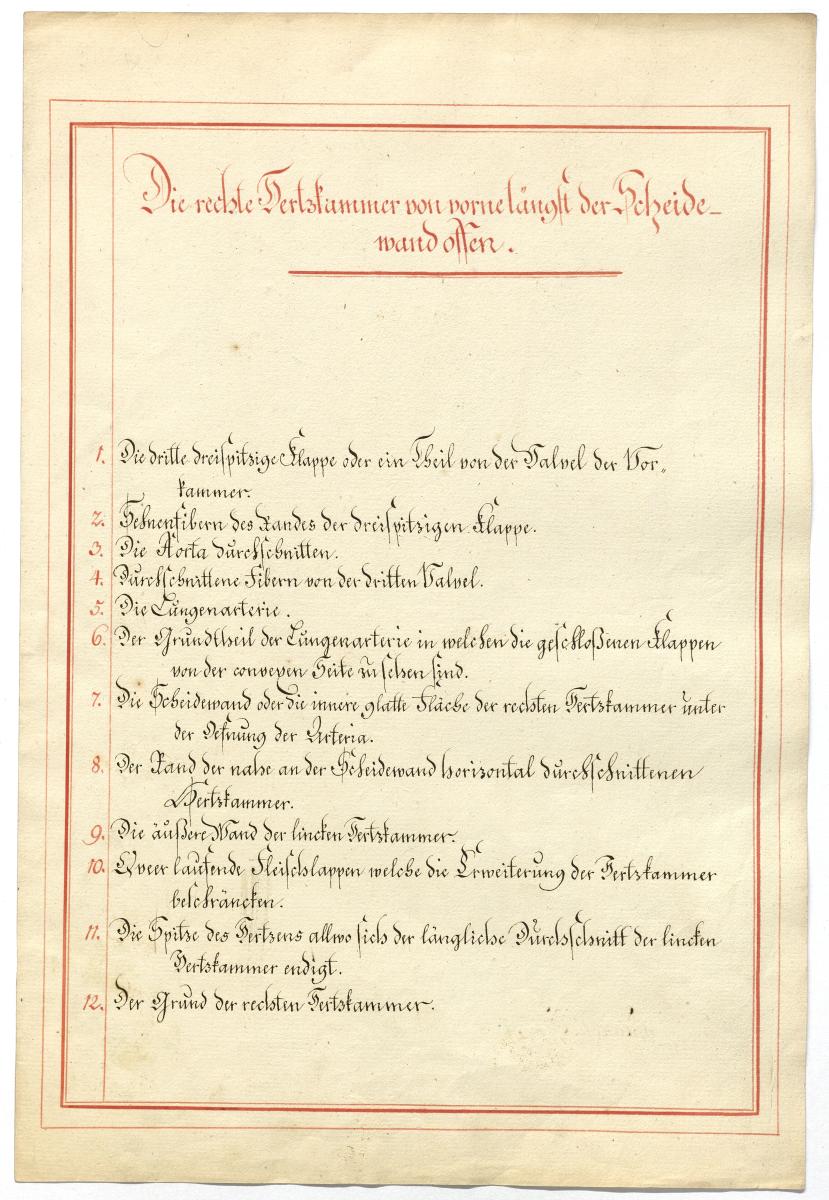 Die rechte Hertzkammer von vorne längst der Scheide-
wand offen.
1. Die dritte dreispitzige Klappe oder ein Theil von der Valvel der Vor-
kammer.
2. Sehnenfibern des Randes der dreispitzigen Klappe.
3. Die Aorta durchschnitten.
4. Durchschnittene Fibern von der dritten Valvel.
5. Die Lungenarterie.
6. Der Grundtheil der Lungenarterie in welchen die geschloßenen Klappen
von der convexen Seite zu sehen sind.
7. Die Scheidewand oder die innere glatte Fläche der rechten Hertzkammer unter
der Oefnung der Arteria.
8. Der Rand der nahe an der Scheidewand horizontal durchschnittenen
Hertzkammer.
9. Die äußere Wand der lincken Hertzkammer.
10. Qveer laufende Fleischlappen welche die Erweiterung der Hertzkammer
beschräncken.
11. Die Spitze des Hertzens allwo sich der längliche Durchschnitt der lincken
Hertzkammer endigt.
12. Der Grund der rechten Hertzkammer.